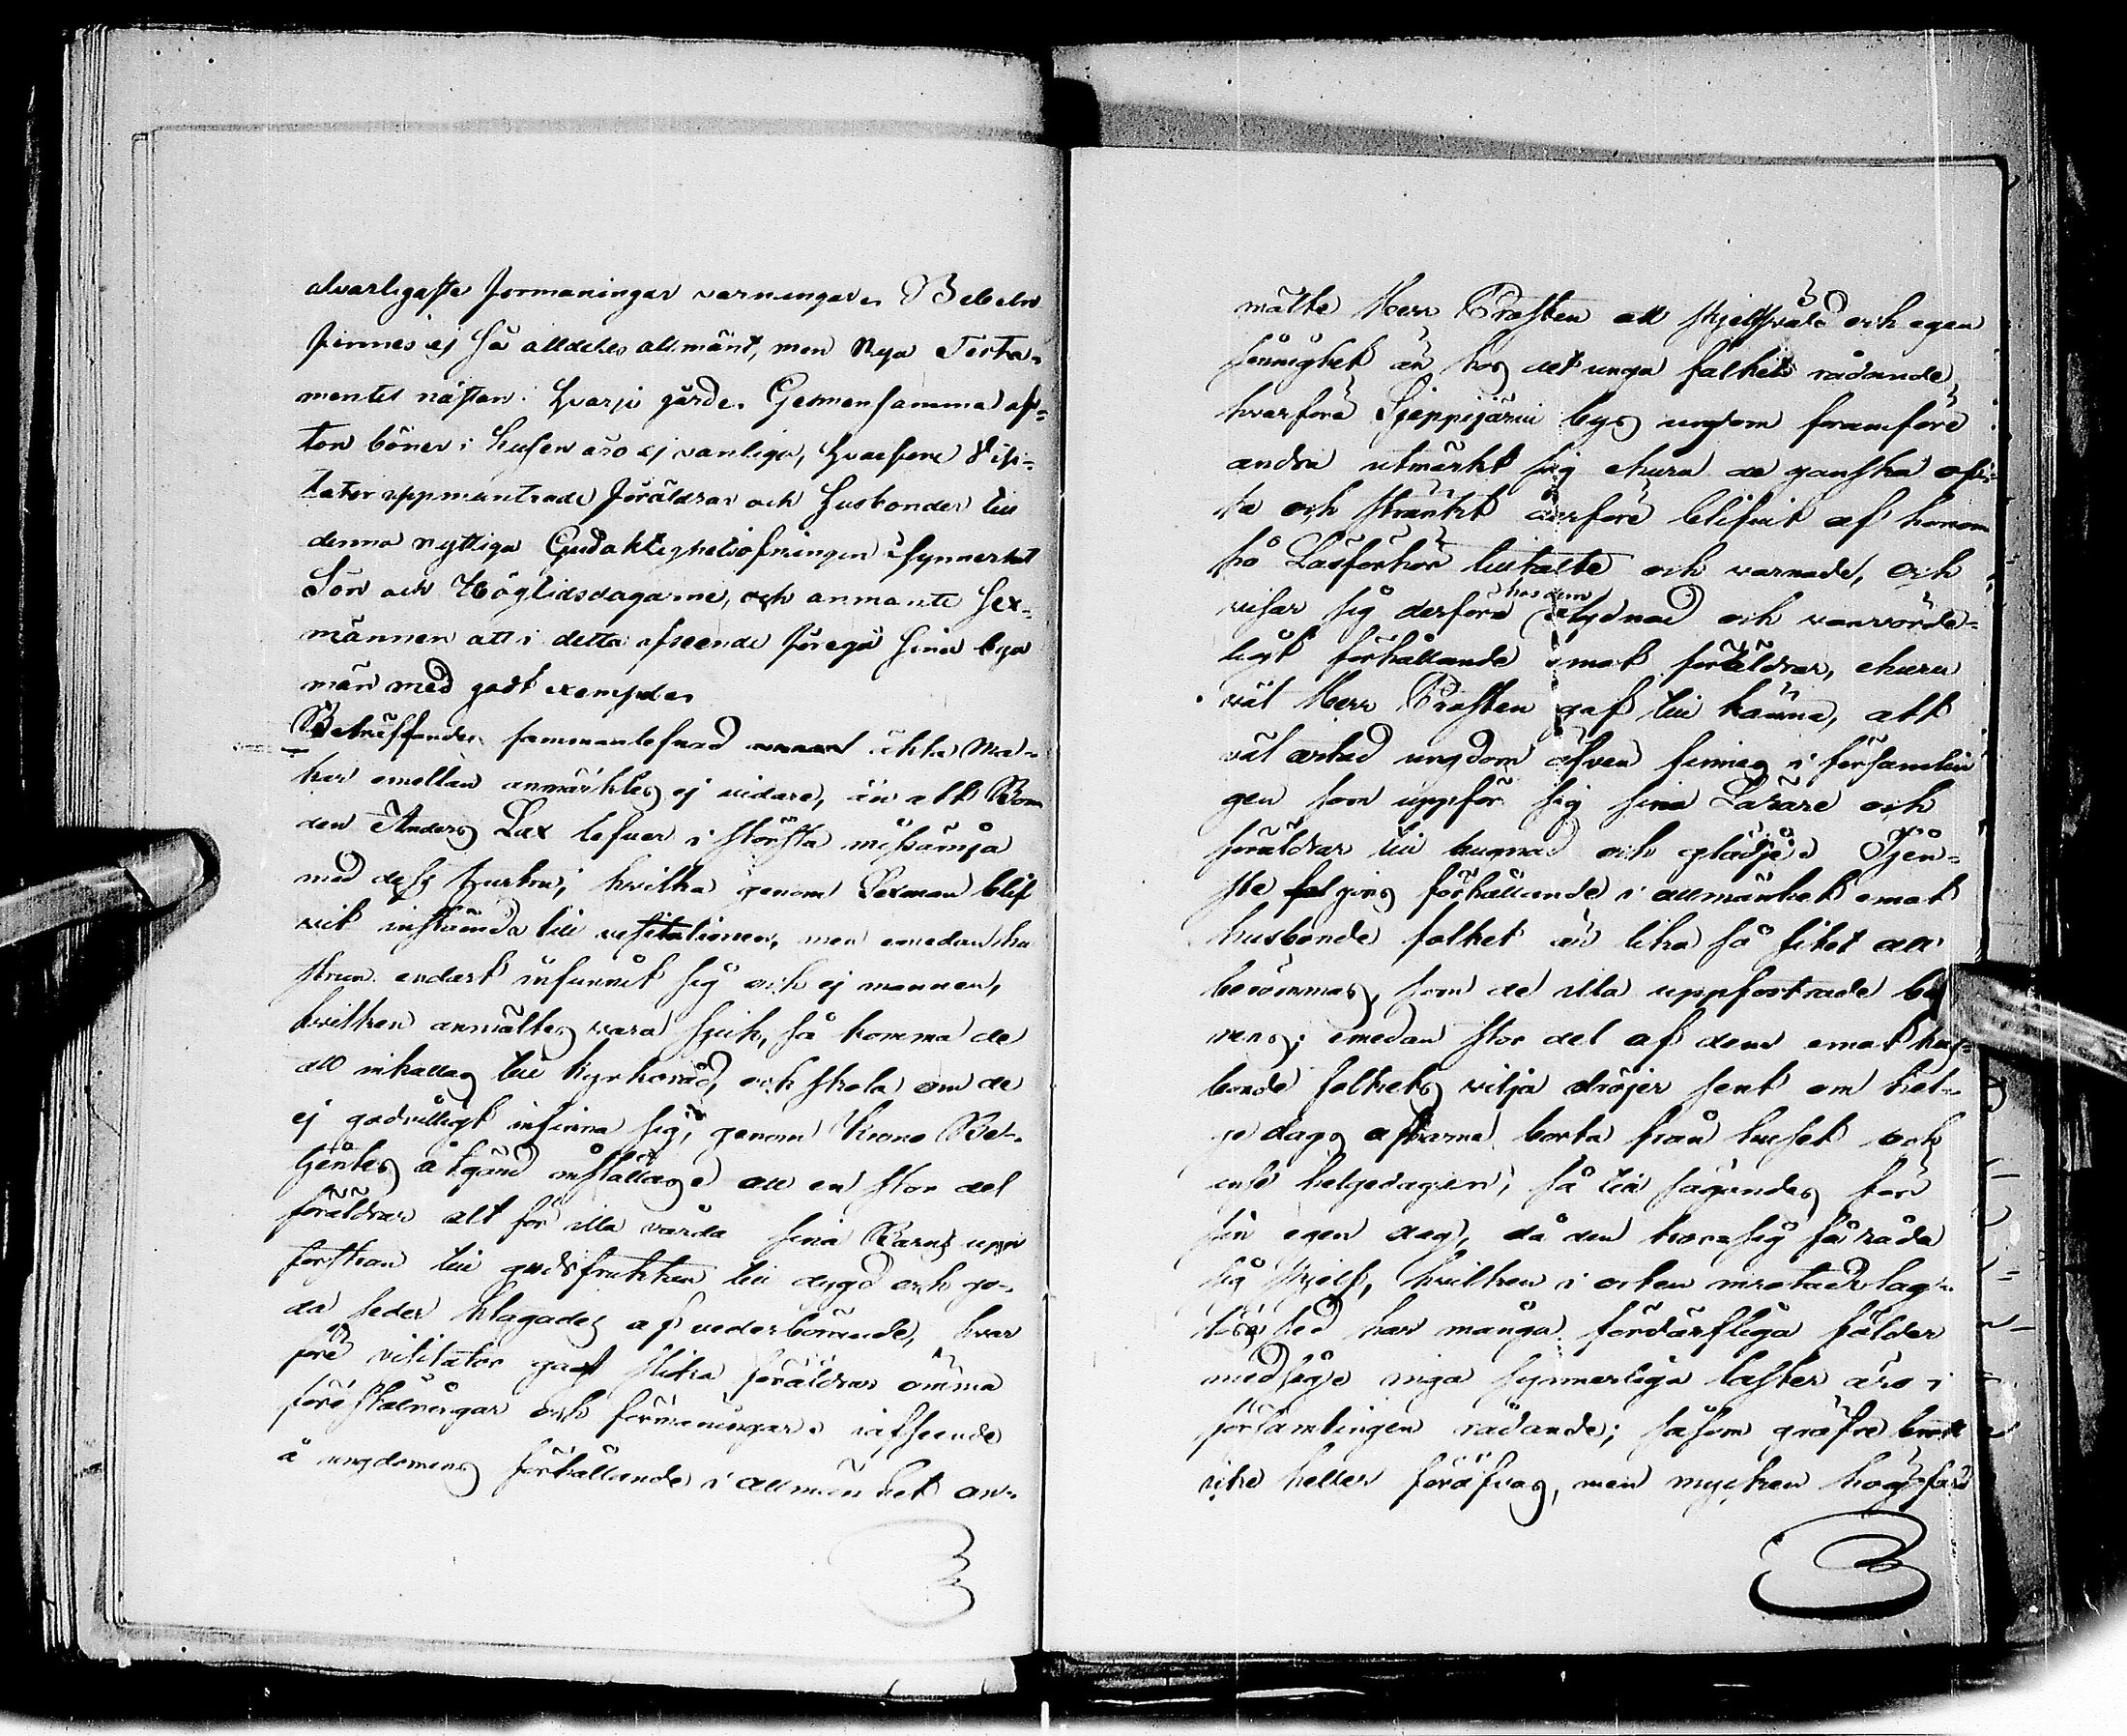 alvarligaste förmaningar varningar. Bibeln
finnes ej så alldeles allmänt, men Nya Testa-
mentet nästan i hvarje gård. Gemensamma af-
ton böner i husen äro ej vanliga, hvarföre Visi-
tator uppmuntrade föräldrar och husbonder till
denna nyttiga Gudaktighetsöfningen i synnerhet
Sön och Högtidsdagarne, och anmante Sex-
männen att i detta afseende föregå sina bya
män med godt exempel.
Beträffande sammanlefnad äkta Ma-
kar emellan anmärktes ej vidare, än att Bon
den Anders Lax lefver i största missämja
med dess hustru; hvilka genom Sexman blif
vit instämda till visitationen, men emedan hu
strun endast infunnit sig och ej mannen,
hvilken anmältes vara sjuk, så komma de
att inkallas till kyrkoråd, och skola om de
ej godvilligt infinna sig, genom Krono Be-
tjentes åtgärd inställas. att en stor del
föräldrar allt för illa vårda sina Barns upp
fostran till gudsfruktan till dygd och go-
da seder klagades af vederbörande, hvar
före visitator gaf slika föräldrar ömma
föreställningar och förmaningar. i afseende
å ungdomens förhållande i allmänhet an-
mälte Herr Prosten att sjelfsvåld och egen
sinnighet är hos det unga folket rådande,
hvarföre Sjeppijärvi bys ungdom framföre
andra utmärkt sig ehuru de ganska ofta
och strängt derföre blifvit af honom
på Läsförhör tilltalte och varnade, och
visar sig derföre hos dem olydnad och vanvörde-
ligt förhållande emot föräldrar, ehuru
väl Herr Prosten gaf till känna, att
väl artad ungdom äfven finnes i församlin
gen som uppför sig sina Lärare och
föräldrar till hugnad och glädje. Tjen-
ste hjons förhållande i allmänhet emot
husbonde folket är lika så litet att
berömmas, som de illa uppfostrade bar
nens; emedan stor del af dem emot hus-
bonde folkets vilja dröjer sent om hel-
ge dags aftnarna borta från huset och
anse helgedagen, så till sägandes för
sin egen dag, då den hvar sig få råda
sig sjelf, hvilken i orten inrotad lag-
lösa sed har många förderfliga följder
med sig. inga synnerliga laster äro i
församlingen rådande; såsom gröfre brott
icke heller föröfvas, men mycken högfärd